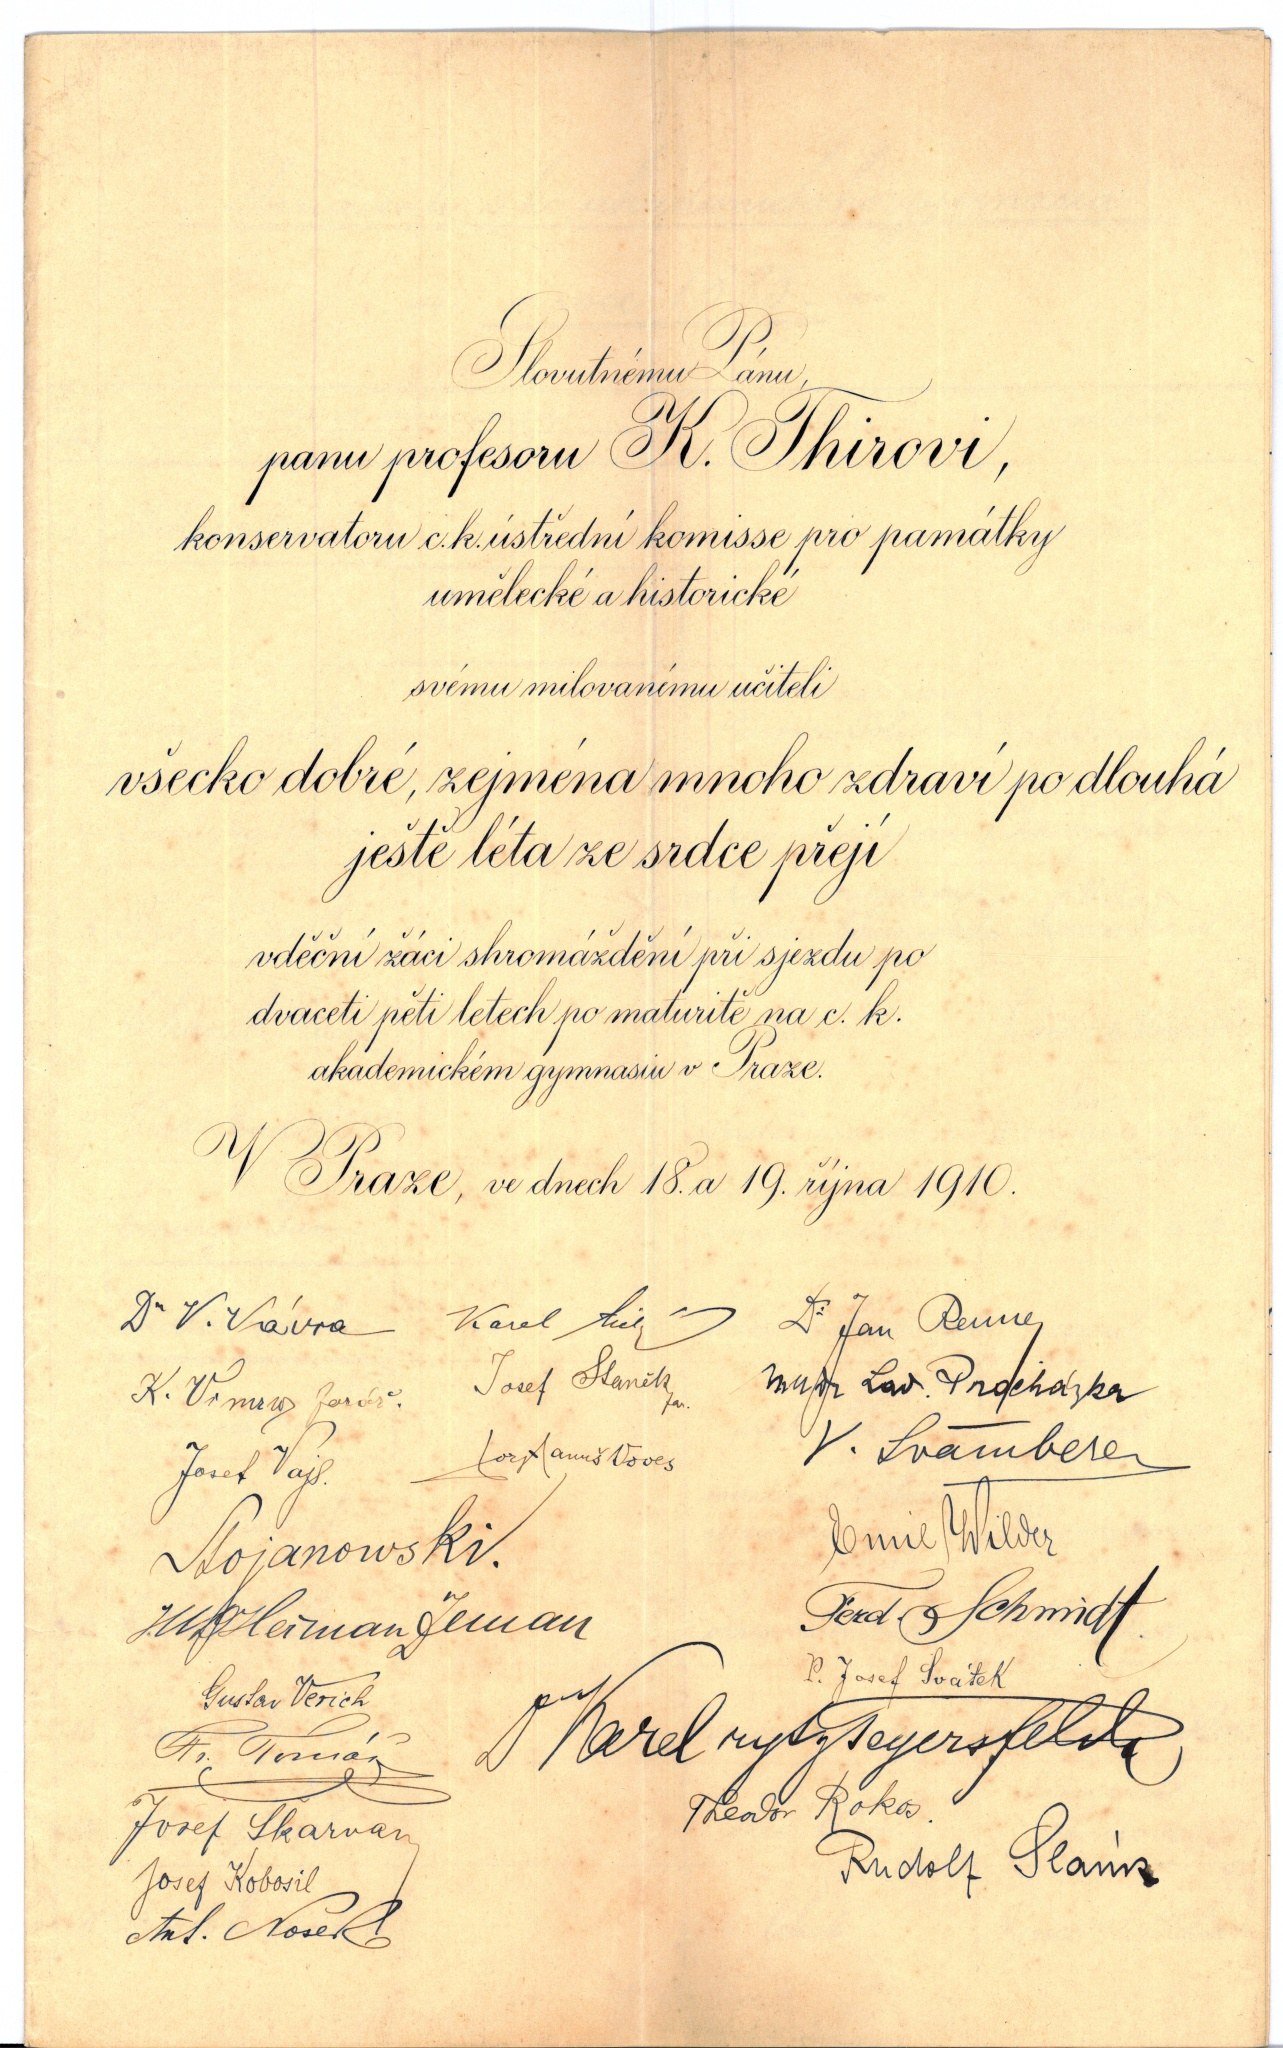 Slovutnému Pánu,
panu profesoru K. Thirovi,
konservatoru c. k. ústřední komisse pro památky
umělecké a historické
svému milovanému učiteli
všecko dobré, zejména mnoho zdraví po dlouhá
ještě léta ze srdce přejí
vděční žáci shromáždění při sjezdu po
dvaceti pěti letech po maturitě na c. k.
akademickém gymnasiu v Praze.
V Praze, ve dnech 18. a 19. října 1910.
Dr V. Vávra
Karel
Dr Jan
K.
Josef Staněk
Lad. Procházka
Josef Vajs.
Voves
V. Švambera
Stojanowski.
Emil Wilder
Heřman Zeman
Ferd. Schmidt
Gustav Verich
P. Josef Svátek
Fr. Tomáš
Dr Karel
Josef Škarvan
Theodor Rokos.
Josef Kobosil
Rudolf
Ant. Nosek